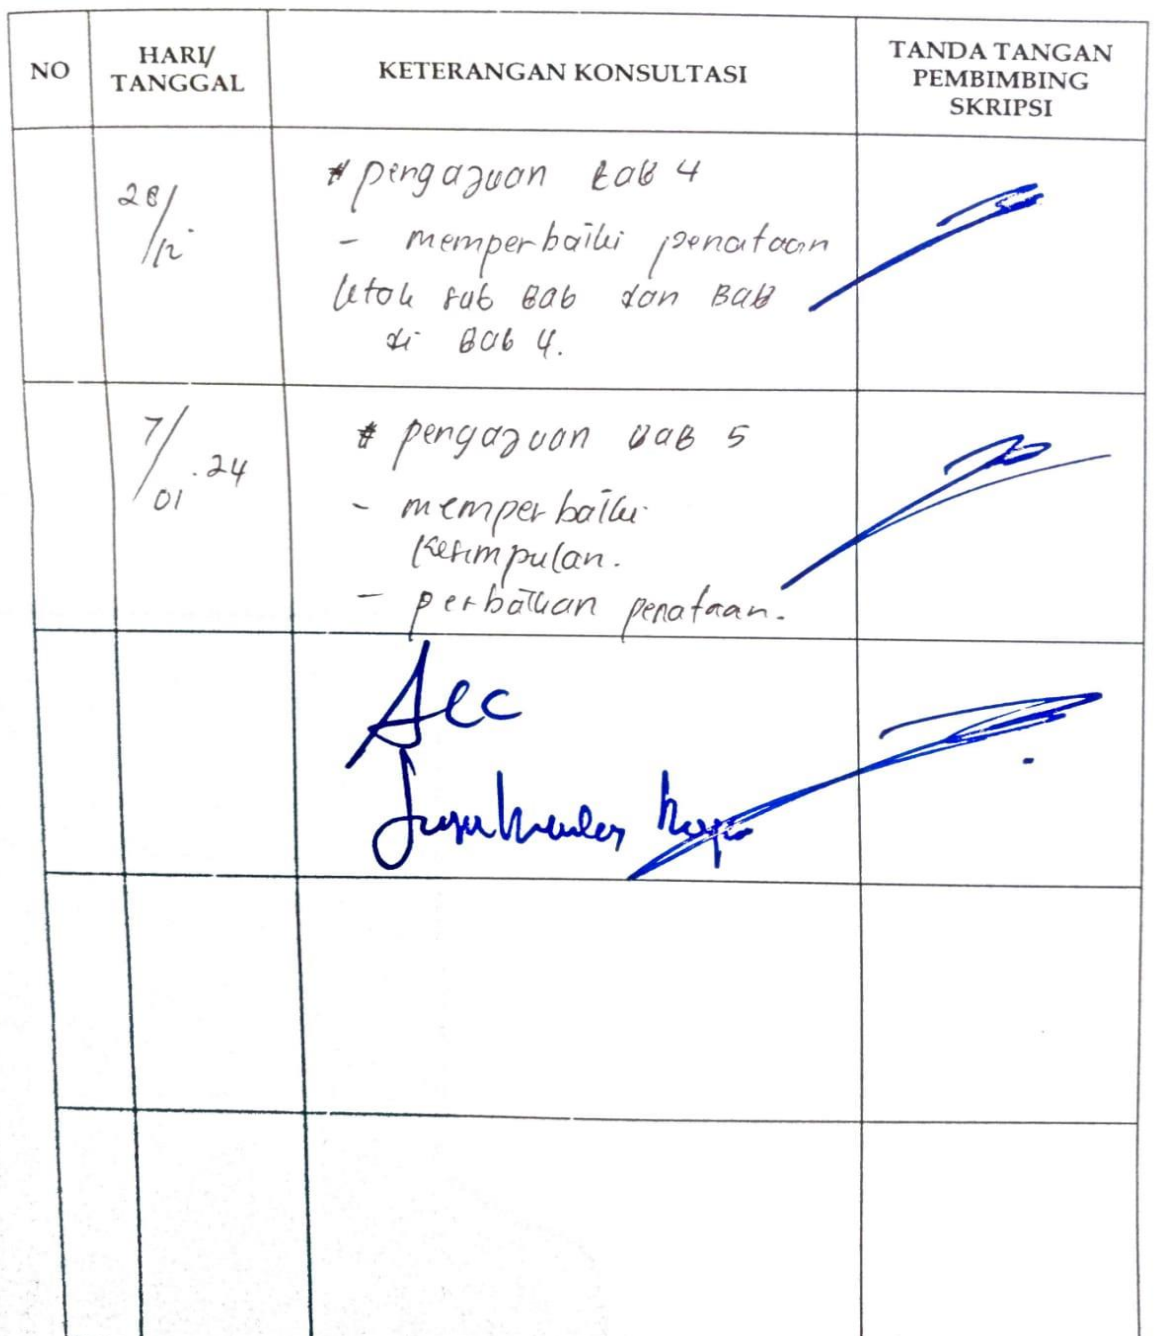 NO
HARI/
TANGGAL
KETERANGAN KONSULTASI
TANDA TANGAN
PEMBIMBING
SKRIPSI
28/12
# pengajuan Bab 4
- memperbaiki penataan
letak sub Bab dan Bab
di Bab 4.
7/01.24
# pengajuan Bab 5
- memperbaiki
Kesimpulan.
- perbaikan penataan.
Acc